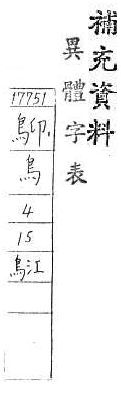 補充資料
異體字表
17751
鴪
烏
4
15
烏江